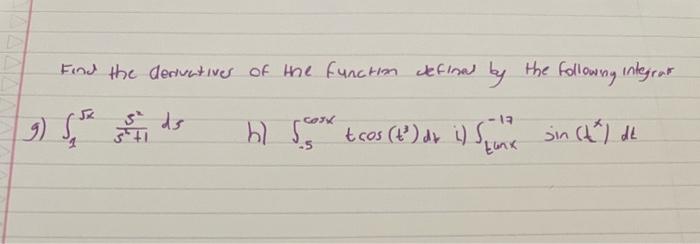 Find the derivatives of the function defined by the following integral
g) ∫₁^√x s²/(s²+1) ds h) ∫₋₅^cosx t cos(t³) dt i) ∫_tanx^-17 sin(t^x) dt